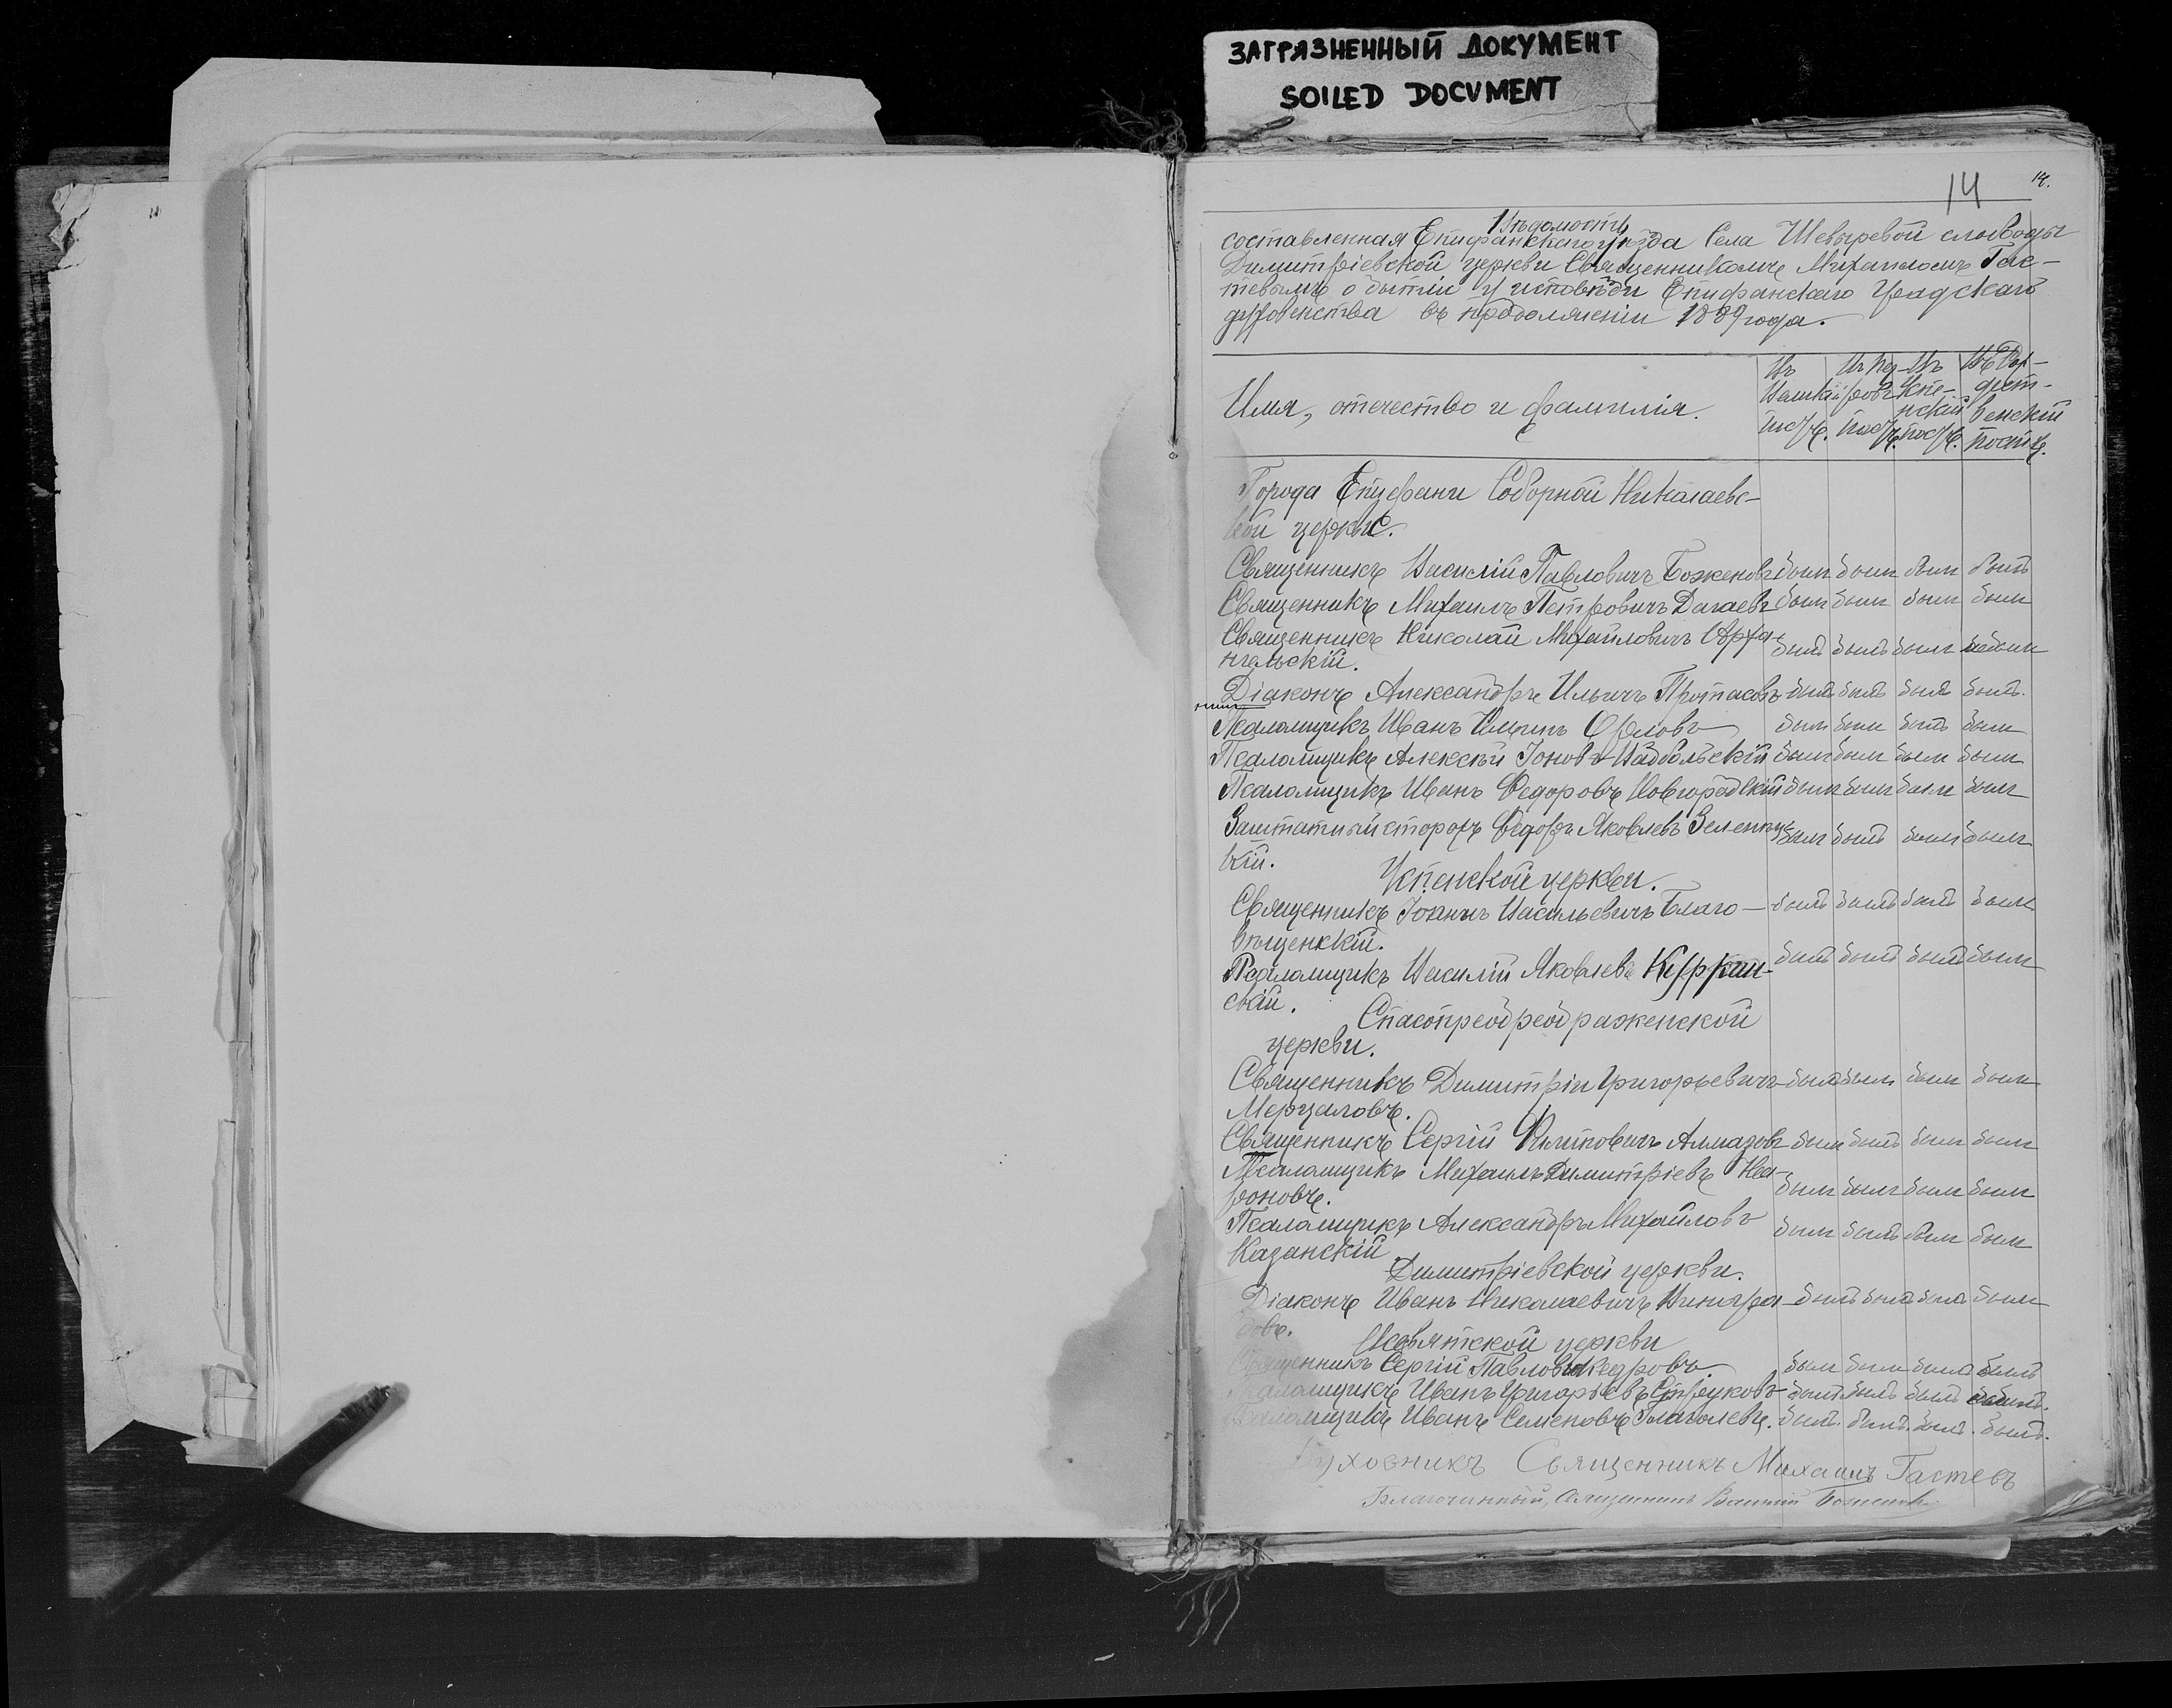 ЗАГРЯЗНЕННЫЙ ДОКУМЕНТ
SOILED DOCUMENT
14
14.
Вѣдомость
составленная Епифанскаго уѣзда Села Шевыревой слободы
Димитріевской церкви Священникомъ Михаиломъ Гас-
тевымъ о бытіи у исповѣди Епифанскаго Градскаго
духовенства въ продолженіи 1889 года.
Имя, отечество и фамилія.
Въ Великій постъ.
Въ Петровъ постъ.
Въ Успенскій постъ.
Въ Рождественскій постъ.
Города Епифани Соборной Николаевс-
кой церкви.
Священникъ Василій Павловичъ Боженовъ былъ былъ былъ былъ
Священникъ Михаилъ Петровичъ Дагаевъ былъ былъ былъ былъ
Священникъ Николай Михайловичъ Арха-
нгельскій. былъ былъ былъ
Діаконъ Александръ Ильичъ Протасовъ былъ былъ былъ былъ.
Псаломщикъ Иванъ Орловъ былъ былъ былъ былъ
Псаломщикъ Алексѣй Іоновъ былъ былъ былъ былъ
Псаломщикъ Иванъ Федоровъ Новгородскій былъ былъ былъ былъ
Заштатный сторожъ Федоръ Яковлевъ былъ былъ былъ былъ
кій.
Успенской церкви.
Священникъ Іоаннъ Васильевичъ Благо- былъ былъ былъ былъ
вѣщенскій.
Псаломщикъ Василій Яковлевъ былъ былъ былъ былъ
скій.
Спасопреобреображенской
церкви.
Священникъ Димитрій Григорьевичъ былъ былъ былъ былъ
Мерцаловъ.
Священникъ Сергій Алмазовъ былъ былъ былъ былъ
Псаломщикъ Михаилъ Димитріевъ
роновъ. былъ былъ былъ былъ
Псаломщикъ Александръ Михайловъ былъ былъ былъ былъ
Казанскій
Димитріевской церкви.
Діаконъ Иванъ Николаевичъ Виногра- былъ былъ былъ былъ
довъ.
церкви
Священникъ Сергій Павловъ Кедровъ. былъ былъ былъ былъ
Псаломщикъ Иванъ Григорьевъ былъ былъ былъ
Псаломщикъ Иванъ Семеновъ Глаголевъ. былъ. былъ. былъ. былъ.
Духовникъ Священникъ Михаилъ Гастевъ
Благочинный, Священникъ Василій Боженовъ.